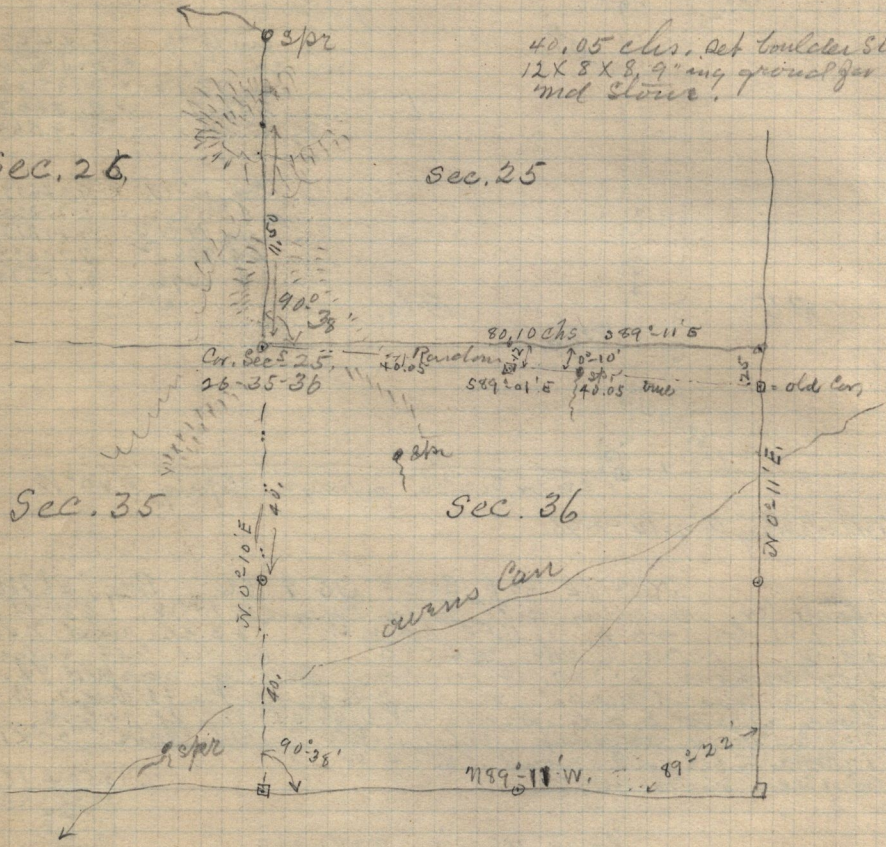 spr
40.05 chs. set boulder St
12 X 8 X 8, 9" in ground for
md Stone.
Sec. 26
Sec. 25
11.50
90°
38'
80.10 chs S89°-11'E
Cor. Secs 25,
26-35-36
Random
40.05
12
0°-10'
S89°-01'E
spr
40.05 true
.25
old Cor
spr
Sec. 35
Sec. 36
40.
N. 0°-10'E
N 0°-11'E.
owens Can
40.
spr
90°-38'
N89°-11'W.
89°-22'